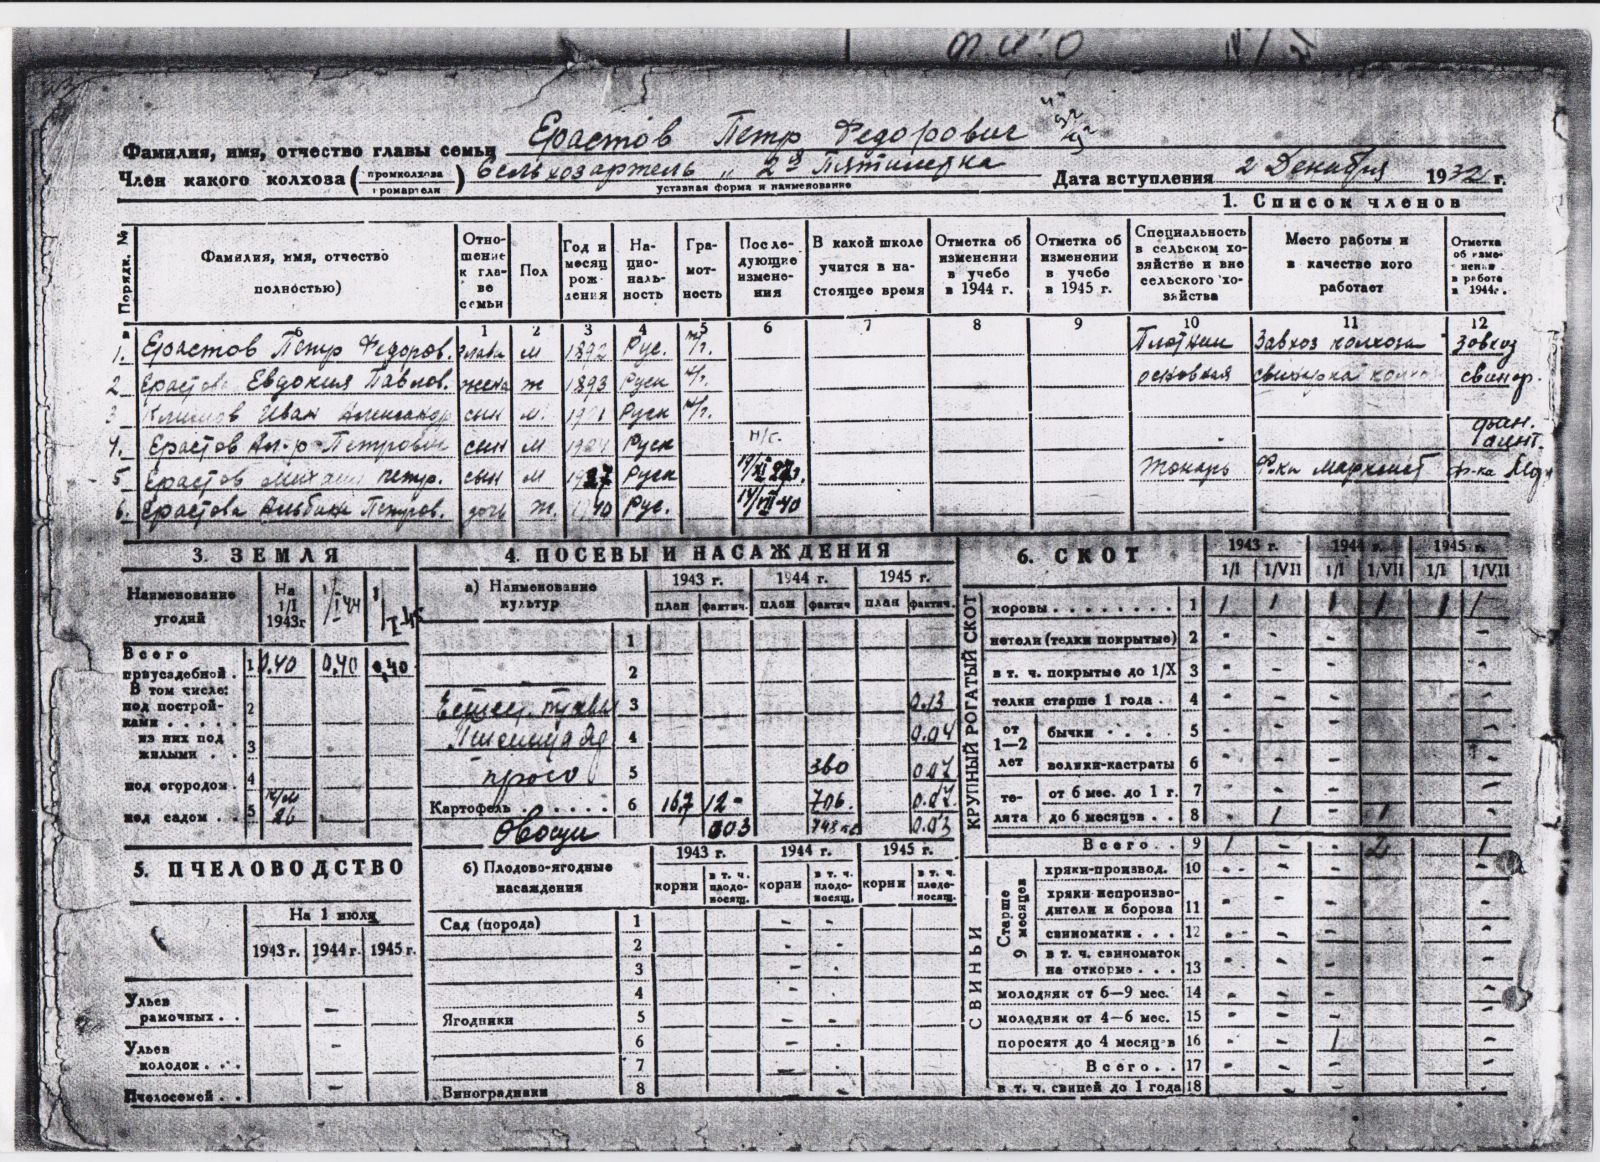 Ф.И.О
Фамилия, имя, отчество главы семьи Ерастов Петр Федорович
Член какого колхоза (промколхоза громартели) Сельхозартель „2я Пятилетка
уставная форма и наименование
Дата вступления 2 Декабря 1932 г.
1. Список членов
№ Порядк. Фамилия, имя, отчество полностью) Отношение к главе семьи Пол Год и месяц рождения Национальность Грамотность Последующие изменения В какой школе учится в настоящее время Отметка об изменении в учебе в 1944 г. Отметка об изменении в учебе в 1945 г. Специальность в сельском хозяйстве и вне сельского хозяйства Место работы и в качестве кого работает Отметка об изменении в работе в 1944г.
б 1 2 3 4 5 6 7 8 9 10 11 12
1. Ерастов Петр Федоров. глава м 1892 Рус. Плотник Завхоз колхоза Завхоз
2 Ерастова Евдокия Павлов. жена ж 1893 Руск свинарка свинар.
3 Иван Александр сын м. Руск
4. Ерастов Ал-р Петрович сын м 1924 Руск н/с. фин. агент.
5 Ерастов Михаил Петр. сын м 1927 Руск Токарь
6. Ерастова Альбина Петров. дочь ж. 40 Рус. 14/III 40
3. ЗЕМЛЯ
Наименование угодий На 1/I 1943г 1/I 44 1/I-45
Всего приусадебной . 1 0,40 0,40 0,40
В том числе: под постройками . . . . . 2
из них под жилыми . . 3
под огородом . 4
под садом . . 5
4. ПОСЕВЫ И НАСАЖДЕНИЯ
а) Наименование культур 1943 г. 1944 г. 1945 г.
план фактич. план фактич. план фактич.
1
2
Естест. травы 3 0.13
Пшеница 4 0.04
просо 5 360 0.07
Картофель . . . . . . 6 167 12- 706. 0.07.
Овощи 003 748 0.03
б) Плодово-ягодные насаждения 1943 г. 1944 г. 1945 г.
корни в т. ч. плодоносящ. корни в т. ч. плодоносящ. корни в т. ч. плодоносящ.
Сад (порода) 1 - -
2 - -
3 - -
4 - -
Ягодники 5 - -
6 - -
7 - -
Виноградники 8 -
5. ПЧЕЛОВОДСТВО
На 1 июля
1943 г. 1944 г. 1945 г.
Ульев рамочных . . -
Ульев колодок . . . -
Пчелосемей . . -
6. СКОТ
1943 г. 1944 г. 1945 г.
1/I 1/VII 1/I 1/VII 1/I 1/VII
КРУПНЫЙ РОГАТЫЙ СКОТ
коровы . . . . . . . . 1 1 1 1 1 1 1
нетели (телки покрытые) 2 - - - -
в т. ч. покрытые до 1/X 3 - - - -
телки старше 1 года . 4 - - - -
от 1—2 лет бычки . . . . 5 - - - -
волики-кастраты 6 - - - -
телята от 6 мес. до 1 г. 7 - - - -
до 6 месяцев . . 8 - 1 - 1 -
Всего . . 9 1 - - 2 - 1
СВИНЬИ
Старше 9 месяцев
хряки-производ. 10 - - - -
хряки непроизводители и борова 11 - - - -
свиноматки . . . 12 - - - -
в т. ч. свиноматок на откорме . . . 13 - - - -
молодняк от 6—9 мес. 14 - - - -
молодняк от 4—6 мес. 15 - - - -
поросята до 4 месяцев 16 - - 1 -
Всего . . 17 - - - -
в т. ч. свиней до 1 года 18 - - - -